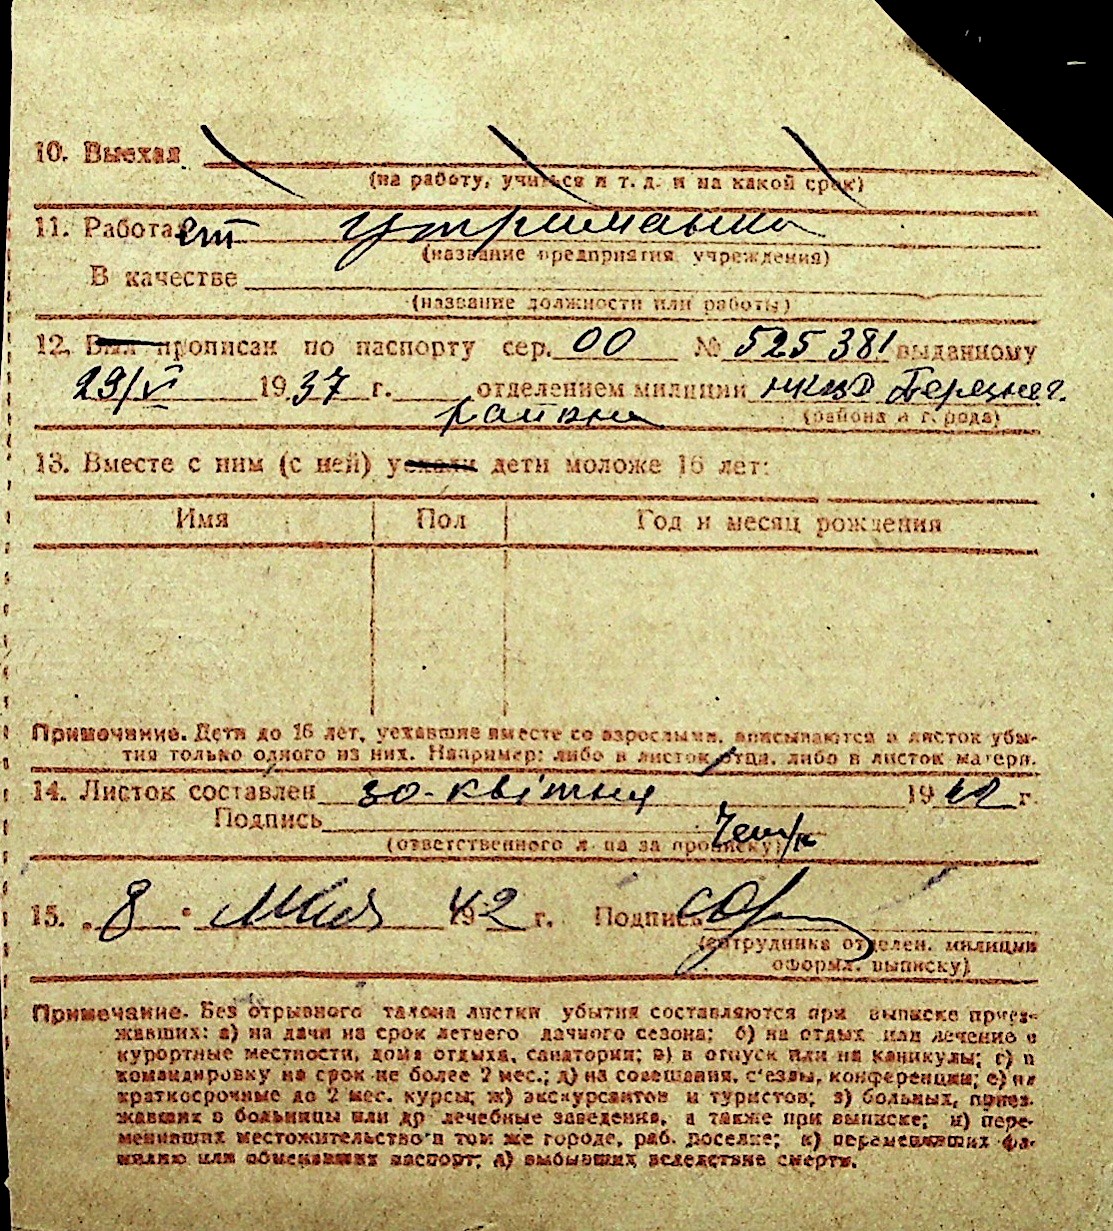 10. Выехал
(на работу, учиться и т. д. и на какой срок)
11. Работа утриманка
(название предприятия, учреждения)
В качестве
(название должности или работы)
12. Был прописан по паспорту сер. 00 № 525381 выданному
29/V 1937 г. отделением милиции НКВД Березнег.
района (района и г. рода)
13. Вместе с ним (с ней) уехали дети моложе 16 лет:
Имя Пол Год и месяц рождения
Примечание. Дети до 16 лет, уехавшие вместе со взрослыми, вписываются в листок убы-
тия только одного из них. Например: либо в листок отца, либо в листок матери.
14. Листок составлен 30 квітня 1942 г.
Подпись
(ответственного л ца за прописку)
15. „8" мая 1942 г. Подпись
(сотрудника отделен. милиции
оформл. выписку)
Примечание. Без отрывного талона листки убытия составляются при выписке приез-
жавших: а) на дачи на срок летнего дачного сезона; б) на отдых или лечение в
курортные местности, дома отдыха, санатории; в) в отпуск или на каникулы; г) в
командировку на срок не более 2 мес.; д) на совещания, с'езды, конференции; е) на
краткосрочные до 2 мес. курсы; ж) экскурсантов и туристов; з) больных, приез-
жавших в больницы или др лечебные заведения, а также при выписке; и) пере-
менивших местожительство в том же городе, раб. поселке; к) переменивших фа-
милию или обменявших паспорт; л) выбывших вследствие смерти.